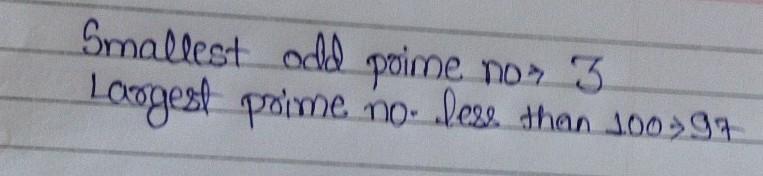 Smallest odd prime no→ 3
Largest prime no. less than 100→97